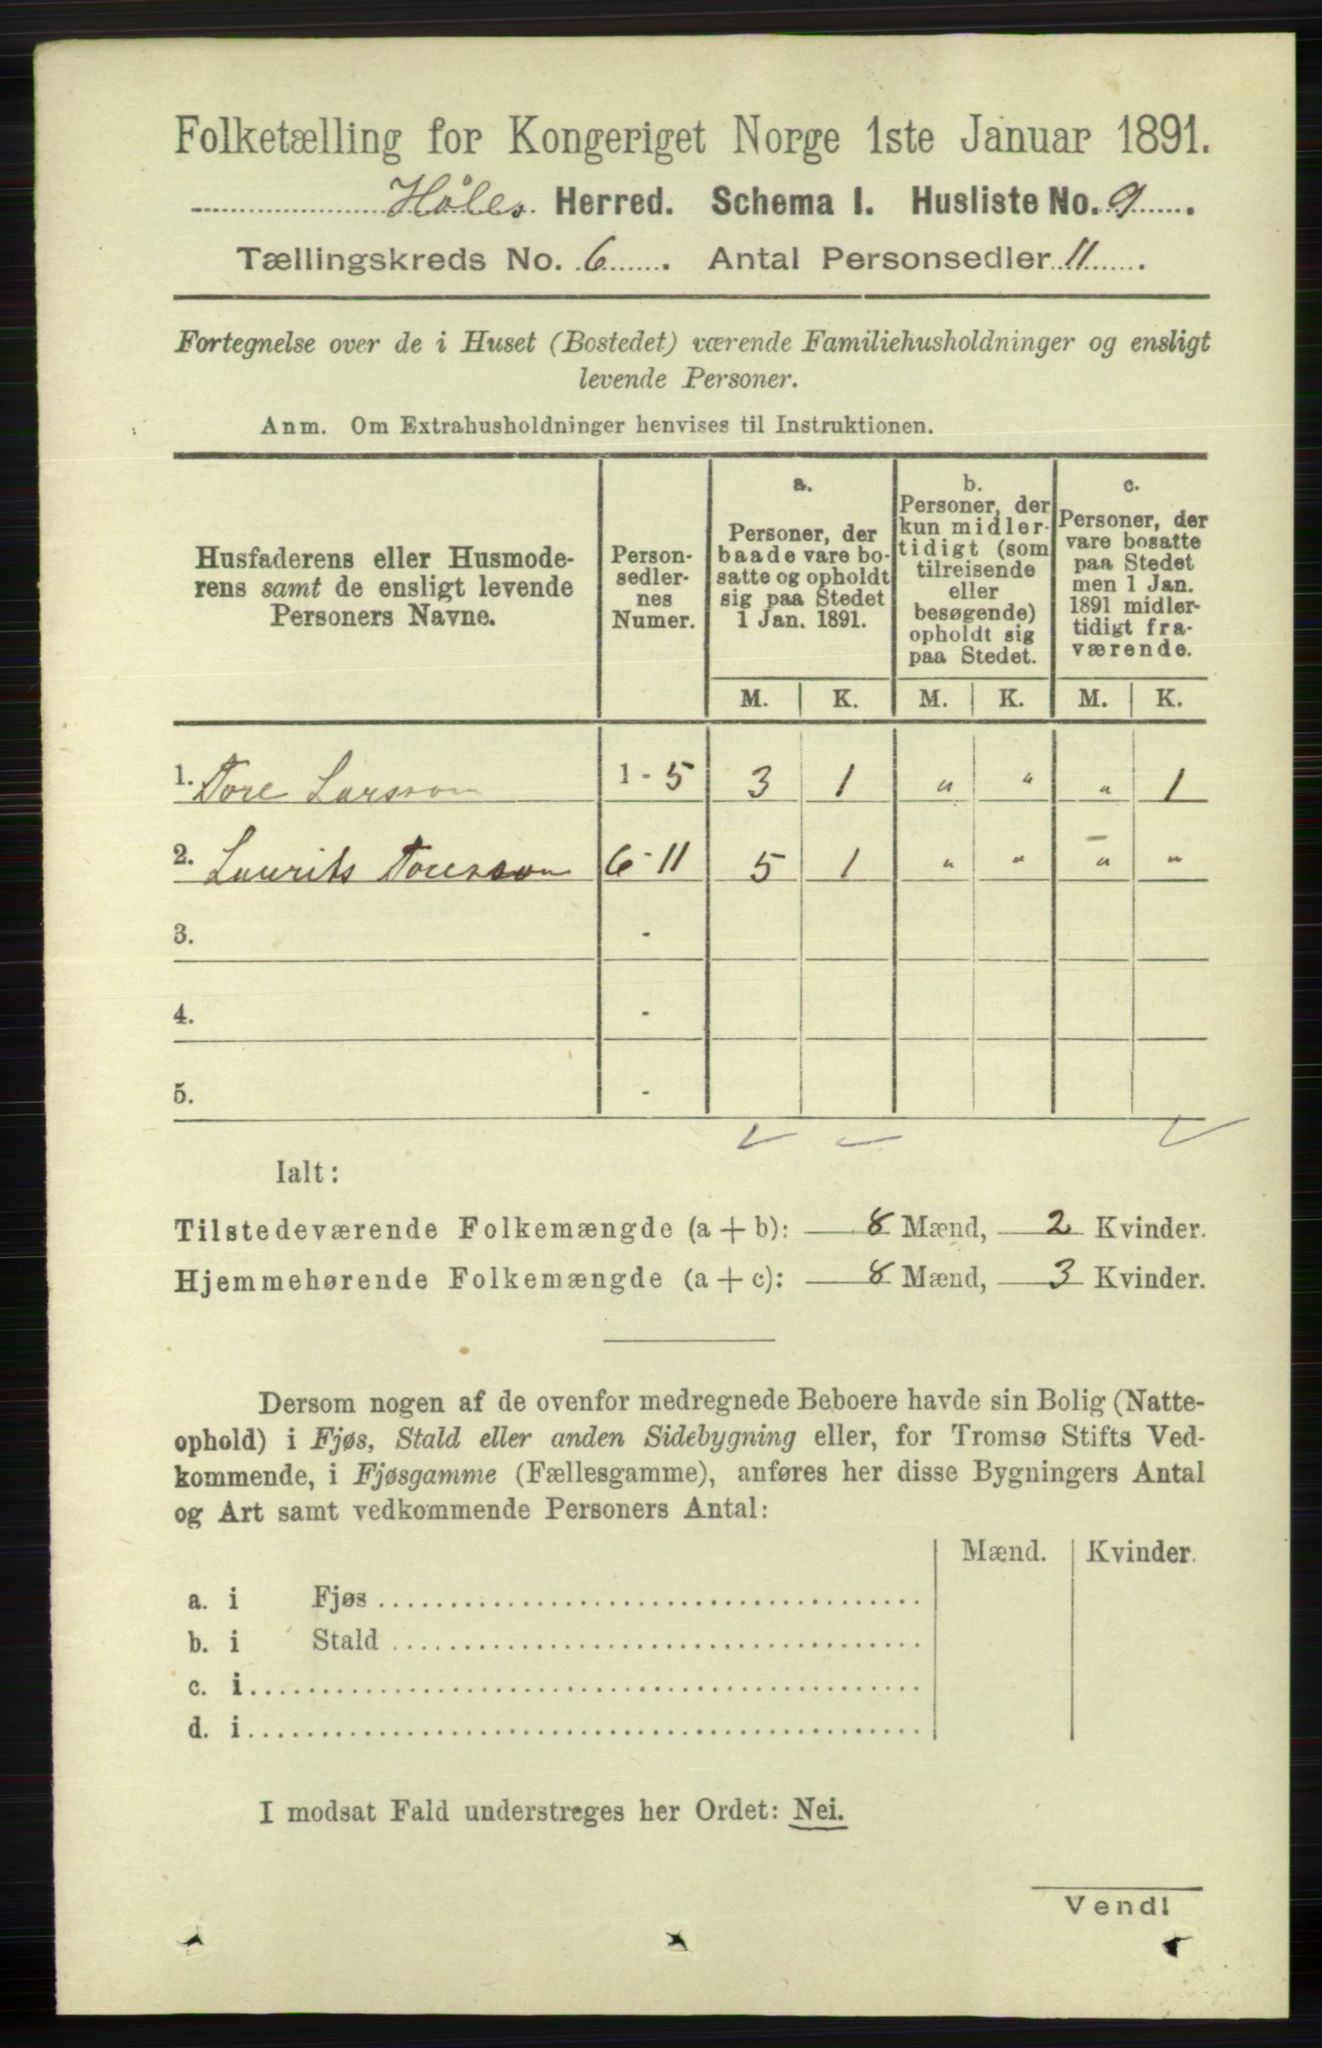 Folketælling for Kongeriget Norge 1ste Januar 1891.
Høles Herred. Schema I. Husliste No. 9
Tællingskreds No. 6. Antal Personsedler 11.
Fortegnelse over de i Huset (Bostedet) værende Familiehusholdninger og ensligt
levende Personer.
Anm. Om Extrahusholdninger henvises til Instruktionen.
Husfaderens eller Husmode-
rens samt de ensligt levende
Personers Navne.
Person-
sedler-
nes
Numer.
a.
Personer, der
baade vare bo-
satte og opholdt
sig paa Stedet
1 Jan. 1891.
b.
Personer, der
kun midler-
tidigt (som
tilreisende
eller
besøgende)
opholdt sig
paa Stedet.
c.
Personer, der
vare bosatte
paa Stedet
men 1 Jan.
1891 midler-
tidigt fra-
værende.
M. K. M. K. M. K.
1. Tore Larsson 1 - 5 3 1 " " " 1
2. Laurits Toresson 6 - 11 5 1 " " " "
3. -
4. -
5. -
Ialt:
Tilstedeværende Folkemængde (a + b): 8 Mænd, 2 Kvinder.
Hjemmehørende Folkemængde (a + c): 8 Mænd, 3 Kvinder.
Dersom nogen af de ovenfor medregnede Beboere havde sin Bolig (Natte-
ophold) i Fjøs, Stald eller anden Sidebygning eller, for Tromsø Stifts Ved-
kommende, i Fjøsgamme (Fællesgamme), anføres her disse Bygningers Antal
og Art samt vedkommende Personers Antal:
Mænd. Kvinder.
a. i Fjøs
b. i Stald
c. i
d. i
I modsat Fald understreges her Ordet: Nei.
Vend!